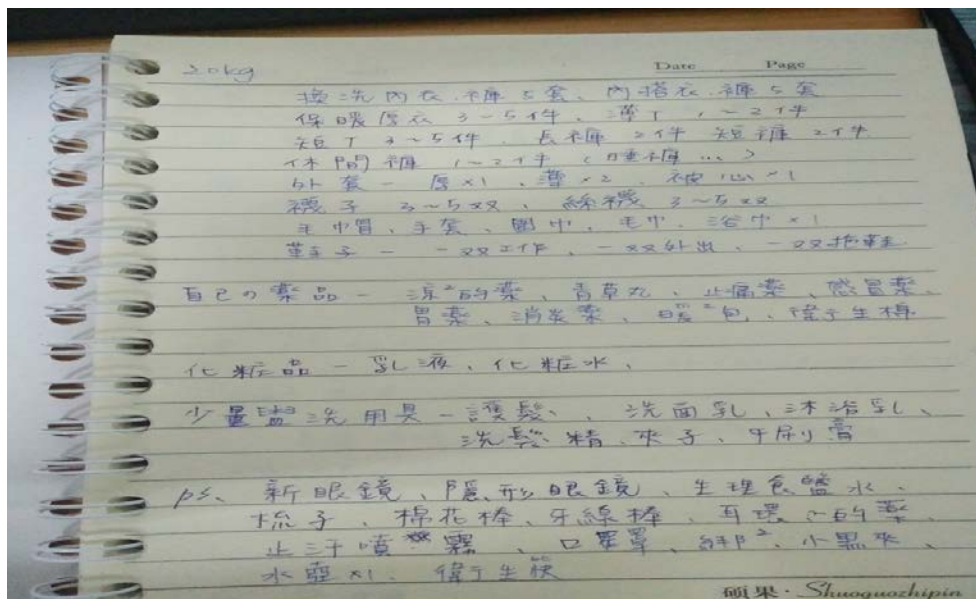 20kg
Date Page
換洗內衣.褲5套、內搭衣.褲5套
保暖厚衣 3~5件、薄T 1~2件
短T 3~5件 長褲 2件 短褲 2件
休閒褲 1~2件 (睡褲...)
外套 - 厚×1、薄×2、被心×1
襪子 3~5双、絲襪 3~5双
毛帽、手套、圍巾、毛巾、浴巾×1
鞋子 - 一双工作、一双外出、一双拖鞋
自己の藥品 - 涼²的藥、青草丸、止痛藥、感冒藥、
胃藥、消炎藥、暖²包、衛生棉
化粧品 - 乳液、化粧水、
少量盥洗用具 - 護髮、、洗面乳、沐浴乳、
洗髮精、夾子、牙刷膏
ps、新眼鏡、隱形眼鏡、生理食鹽水、
梳子、棉花棒、牙線棒、耳環、的藥、
止汗噴霧、口罩、小黑夾、
水壺×1、衛生筷
碩果·Shuoguozhipin